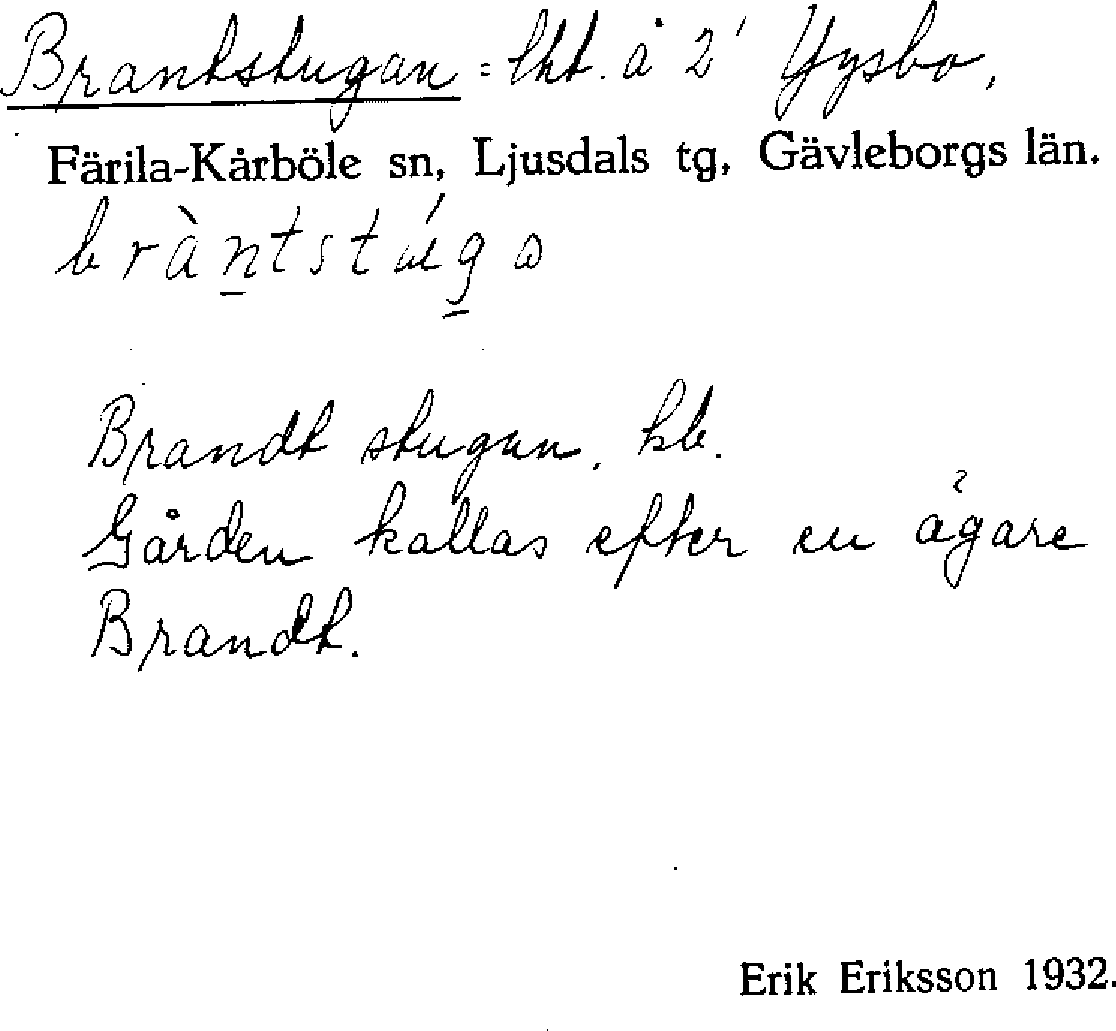 Brantstugan = lht. å 2' Yysbo,
Färila-Kårböle sn, Ljusdals tg, Gävleborgs län.
Brandt stugan, hb.
Gården kallas efter en ägare
Brandt.
Erik Eriksson 1932.